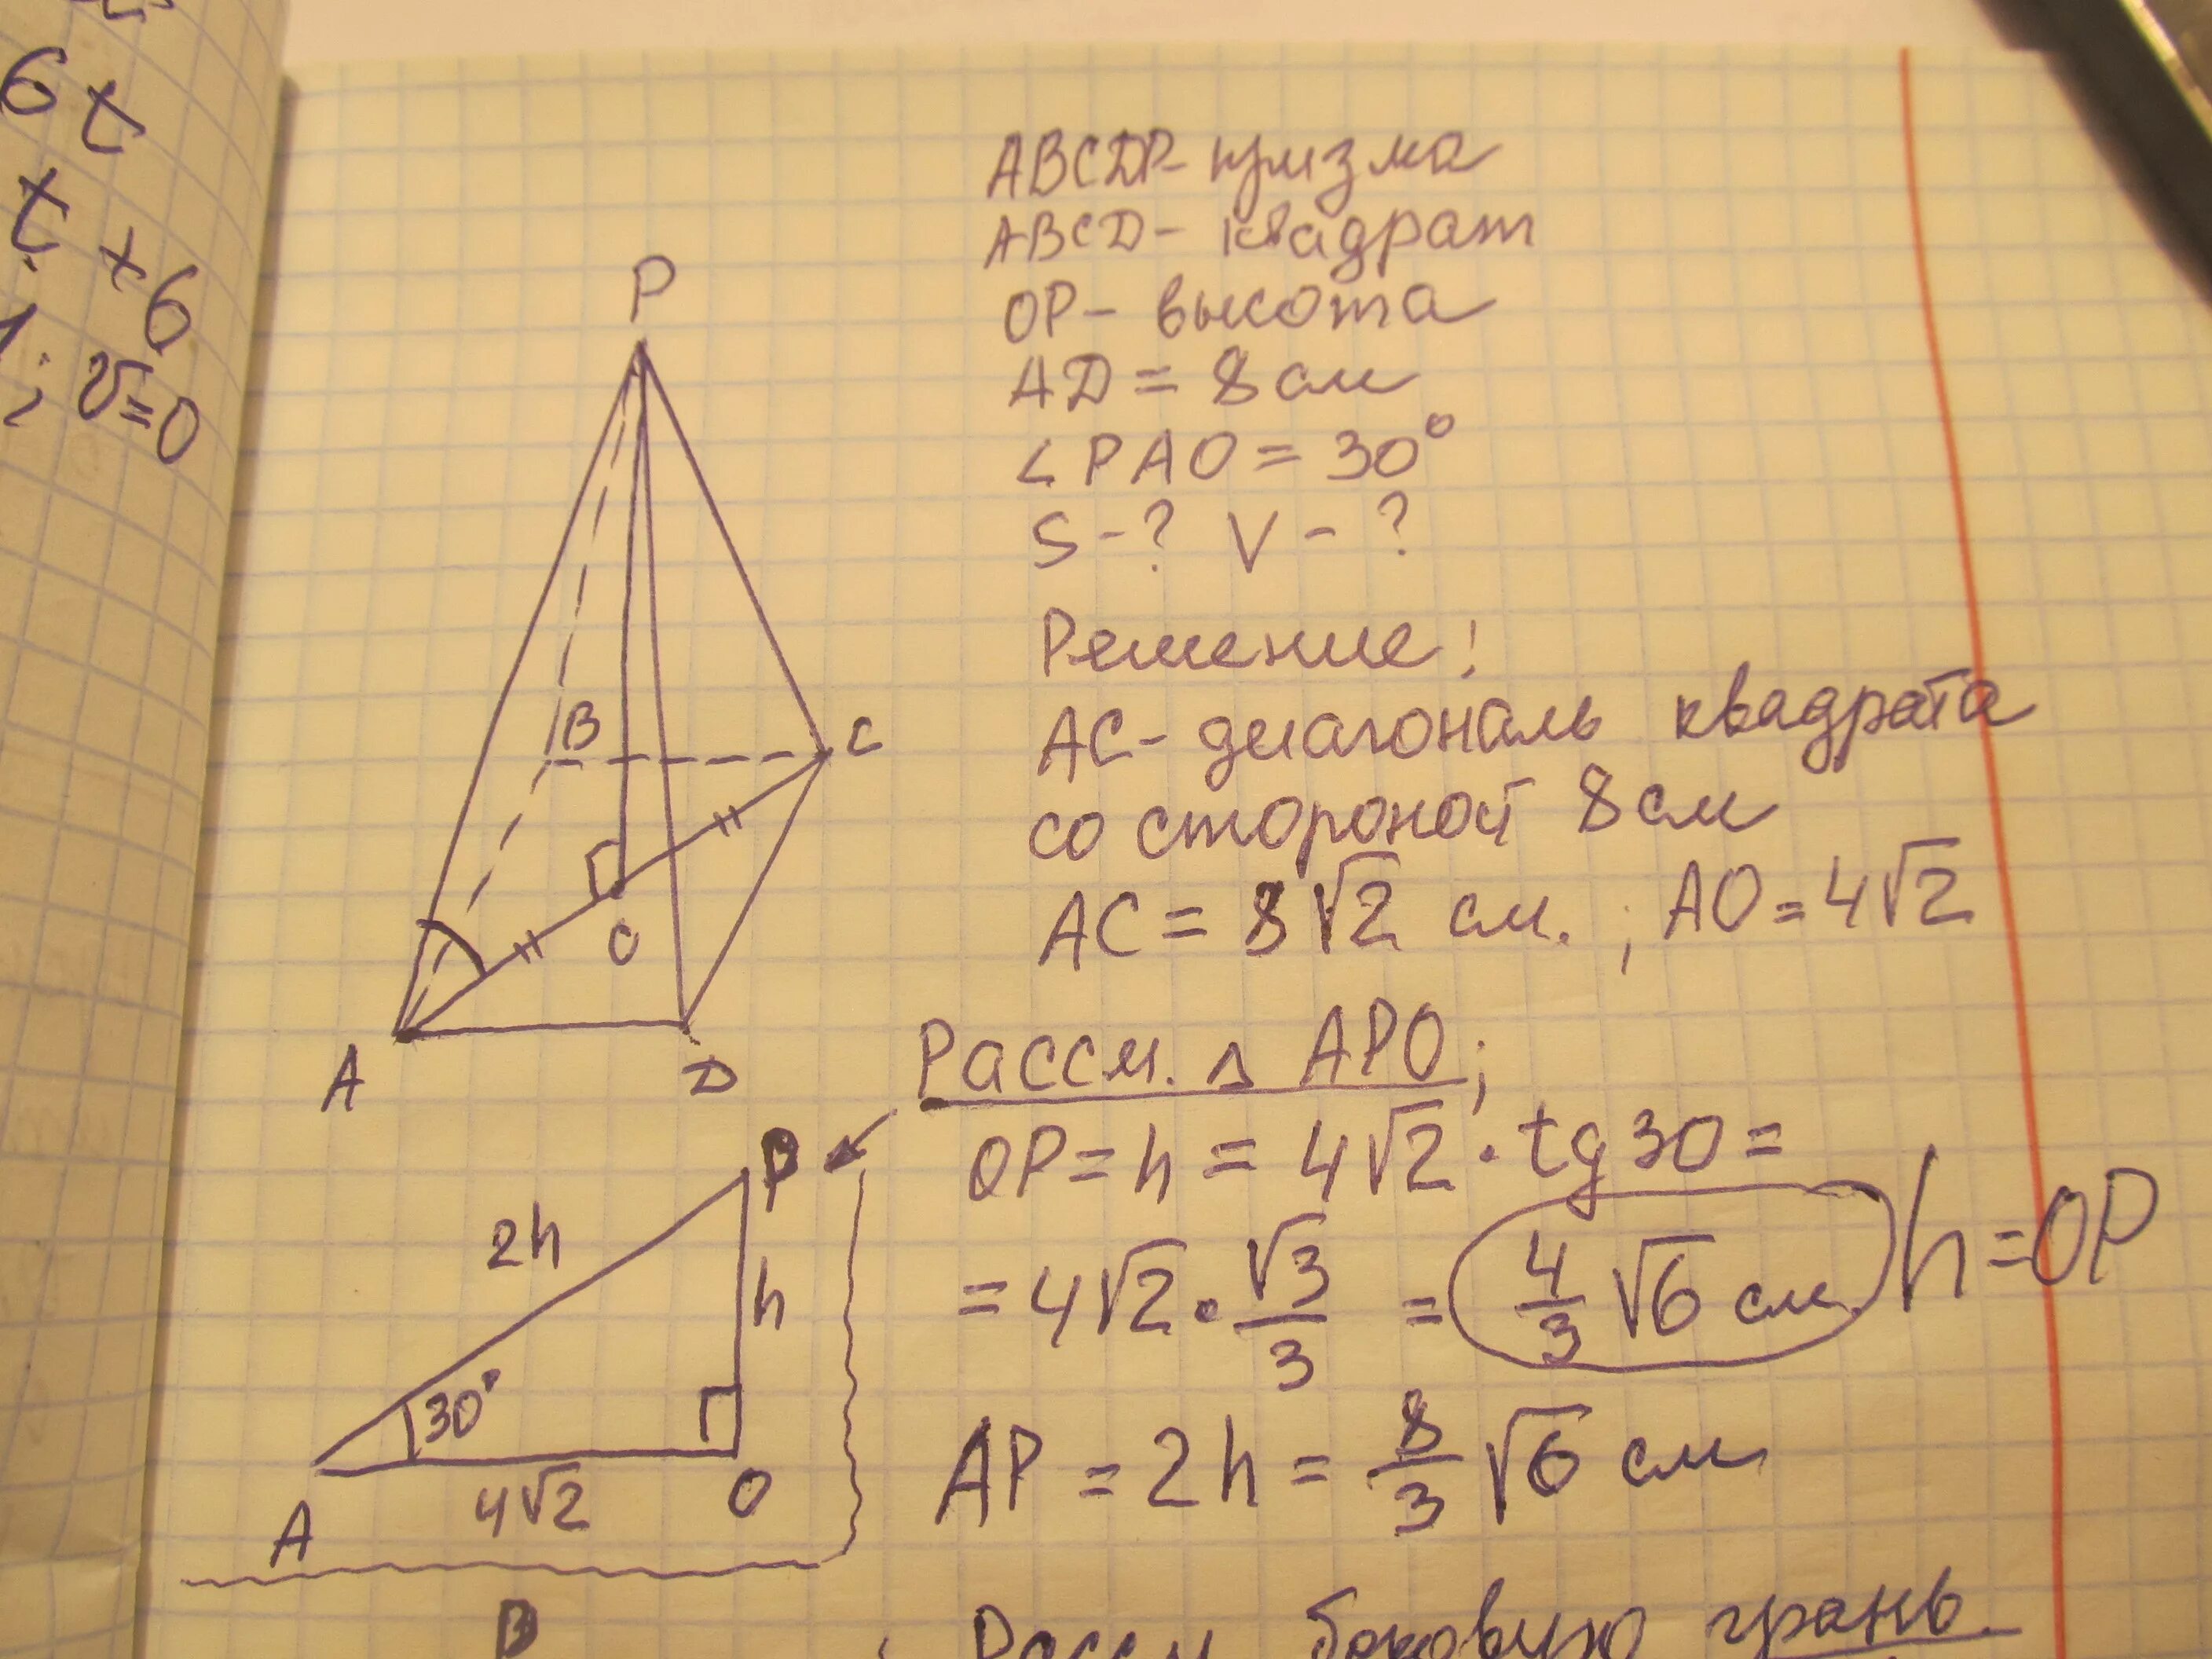 6t
t
+6
; v=0
ABCDP- призма
ABCD- квадрат
OP- высота
AD = 8 см
∠PAO = 30°
S-? V-?
Решение:
AC- диагональ квадрата
со стороной 8 см
AC = 8√2 см. ; AO = 4√2
P
B
C
O
A
D
Рассм. Δ APO;
OP = h = 4√2 · tg 30 =
= 4√2 · √3/3 = 4/3 √6 см h = OP
AP = 2h = 8/3 √6 см
P
2h
h
30°
A
4√2
O
B
Рассм боковую грань.